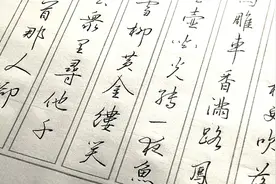 吹
馬雕車香滿路鳳
壺光轉一夜魚
雪柳黃金縷笑
眾里尋他千
首那人卻